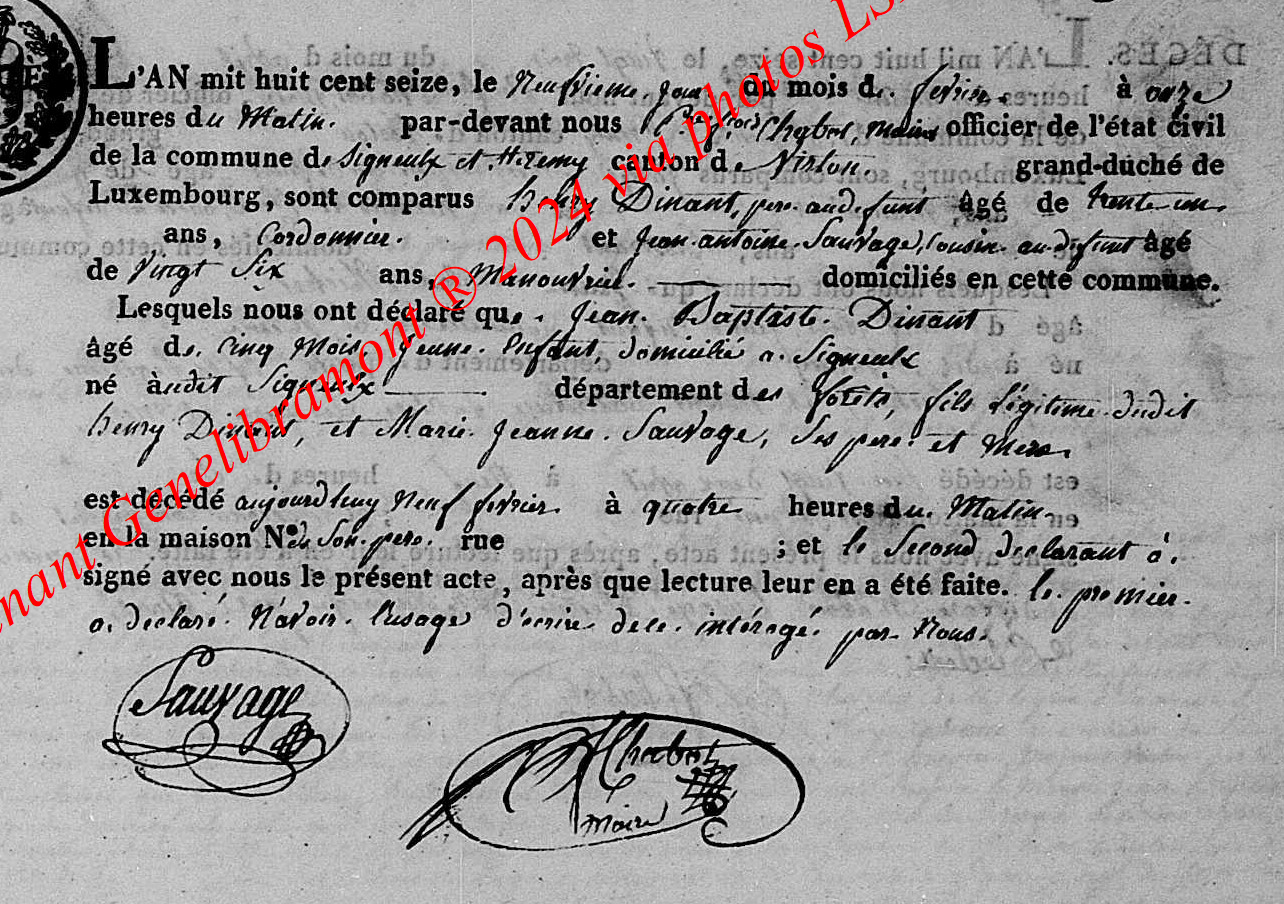 L'AN mit huit cent seize, le Neufvieme jour du mois de fevrier à onze
heures du Matin. par-devant nous Chabot, maire officier de l'état civil
de la commune de Signeulx et St. Remy canton de Virton. grand-duché de
Luxembourg, sont comparus henry Dinant, pere au defunt âgé de trente un
ans, Cordonnier. et Jean antoine Sauvage, cousin au defunt âgé
de Vingt Six ans, Manouvrier domiciliés en cette commune.
Lesquels nous ont déclaré que Jean Baptiste Dinant
âgé de Cinq Mois, jeune Enfant, domicilié a Signeulx
né àudit Signeulx département des forêts, fils légitime dudit
henry Dinant, et Marie Jeanne Sauvage, Ses pere et Mere
est décédé aujourd huy Neuf fevrier à quatre heures du Matin
en la maison No. de Son pere. rue ; et le Second declarant à
signé avec nous le présent acte, après que lecture leur en a été faite. le premier
a declaré N'avoir l'usage d'écrire de ce intéragé par Nous.
Sauvage
Chabot
maire
nant Genelibramont ® 2024 via photos LS